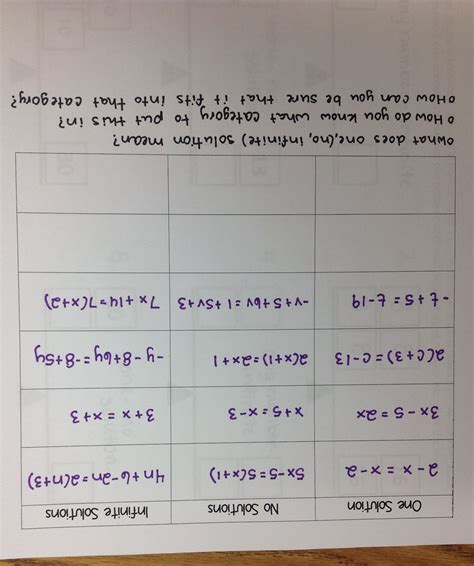 One Solution No Solutions Infinite Solutions
2-x=x-2 5x-5=5(x+1) 4n+6-2n=2(n+3)
3x-5=2x x+5=x-3 3+x=x+3
2(c+3)=c-13 2(x+1)=2x+1 -y-8+6y=-8+5y
-t+5=t-19 -v+5+6v=1+5v+3 7x+14=7(x+2)
o what does one,(no, infinite) solution mean?
o How do you know what category to put this in?
o How can you be sure that it fits into that category?